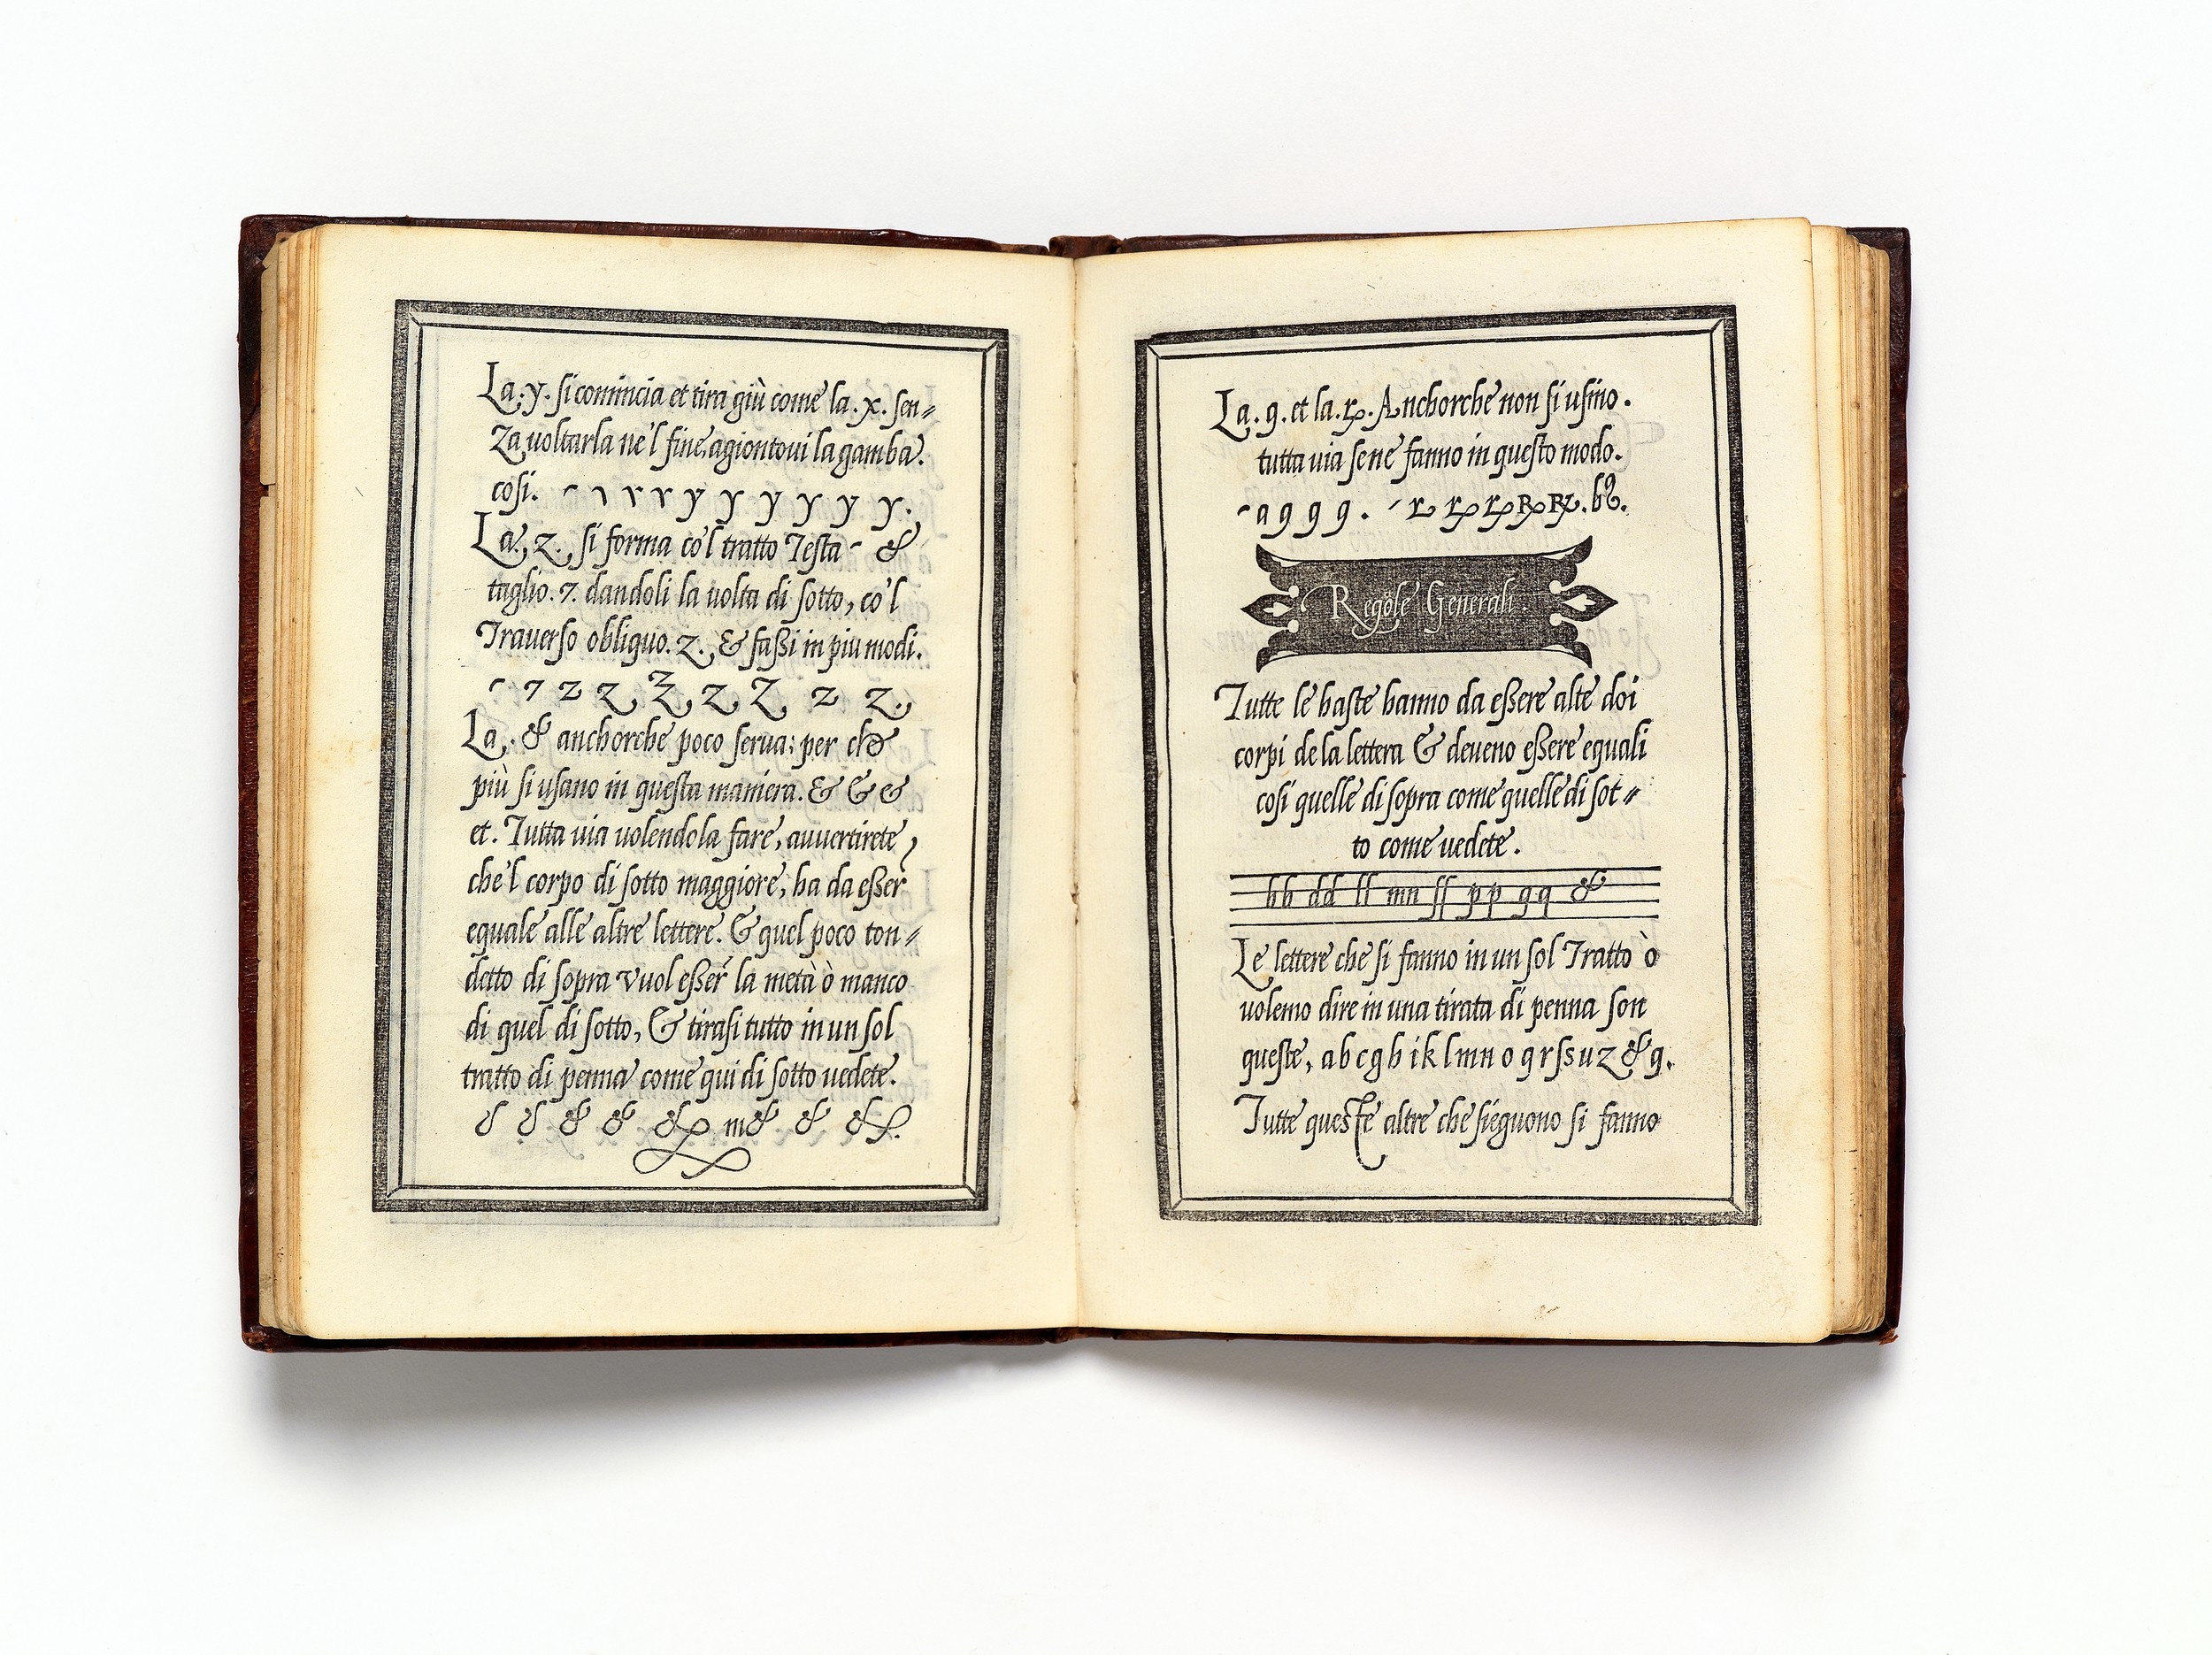 La. y. si comincia et tira giù come la. x. sen=
za voltarla ne'l fine, agiontovi la gamba.
cosi. y y y y y y.
La. z. si forma co'l tratto Testa - &
taglio. 7. dandoli la uolta di sotto, co'l
Trauerso obliquo. z. & faßi in piu modi.
7 z z z z z z z.
La. & anchorche poco serua: per che
più si usano in questa maniera. & & &
et. Tutta uia uolendola fare, auuertirete
che'l corpo di sotto maggiore, ha da eßer
equale alle altre lettere. & quel poco ton=
detto di sopra vuol eßer la metà ò manco
di quel di sotto, & tirasi tutto in un sol
tratto di penna come qui di sotto uedete.
& & & m& & &
La. 9. et la. ꝝ. Anchorche non si usino.
tutta uia se ne fanno in questo modo.
a 9 9 9. ꝝ ꝝ
Regole Generali.
Tutte le haste hanno da eßere alte doi
corpi de la lettera & deueno eßere equali
cosi quelle di sopra come quelle di sot=
to come uedete.
bb dd ll mn ſſ pp qq &
Le lettere che si fanno in un sol Tratto ò
uolemo dire in una tirata di penna son
queste, a b c g h i k l m n o q r ſ s u z & 9.
Tutte queste altre che sieguono si fanno